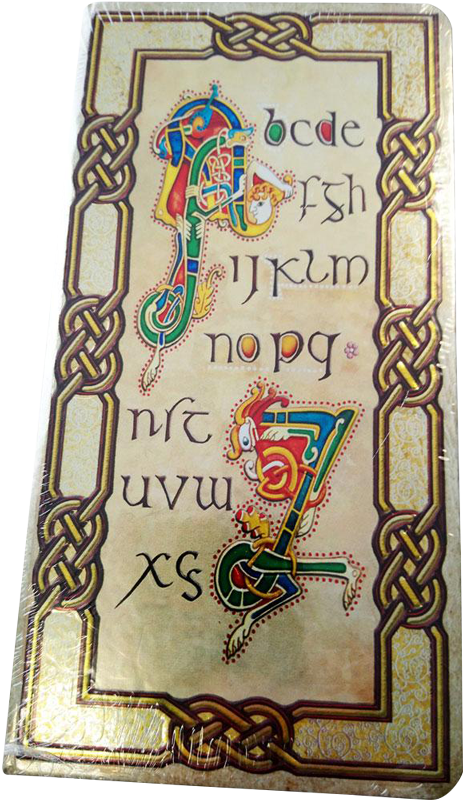 Abcde
fgh
ijklm
nopq
rst
uvw
xyZ